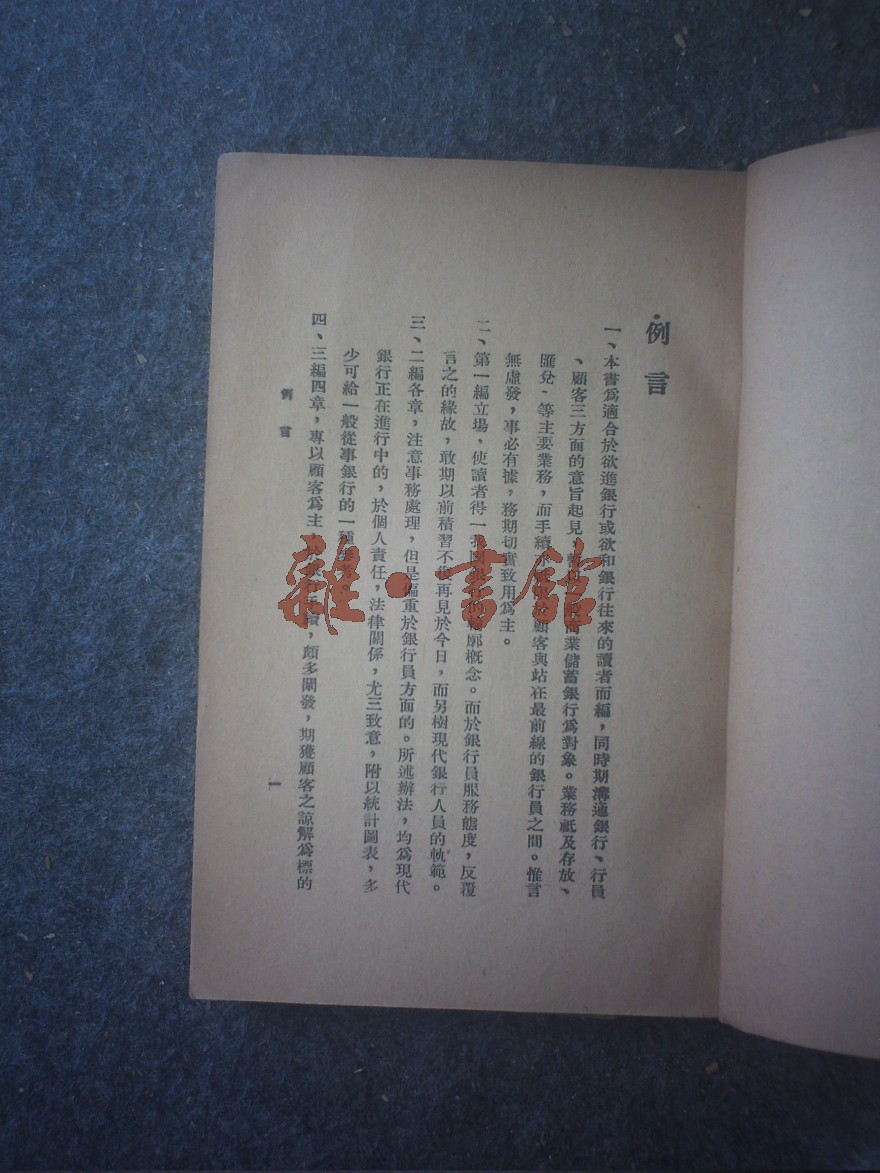 例言
一、本書爲適合於欲進銀行或欲和銀行往來的讀者而編，同時期溝通銀行、行員
、顧客三方面的意旨起見，商業儲蓄銀行爲對象。業務祇及存放、
匯兌、等主要業務，而手續顧客與站在最前線的銀行員之間。惟言
無虛發，事必有據，務期切實致用爲主。
二、第一編立場，使讀者得一我國銀行的輪廓概念。而於銀行員服務態度，反覆
言之的緣故，敢期以前積習不復再見於今日，而另樹現代銀行人員的軌範。
三、二編各章，注意事務處理，但是偏重於銀行員方面的。所述辦法，均爲現代
銀行正在進行中的，於個人責任，法律關係，尤三致意，附以統計圖表，多
少可給一般從事銀行的一種
四、三編四章，專以顧客爲主，於銀行手續，頗多闡發，期獲顧客之諒解爲標的
例言
一
雜·書館